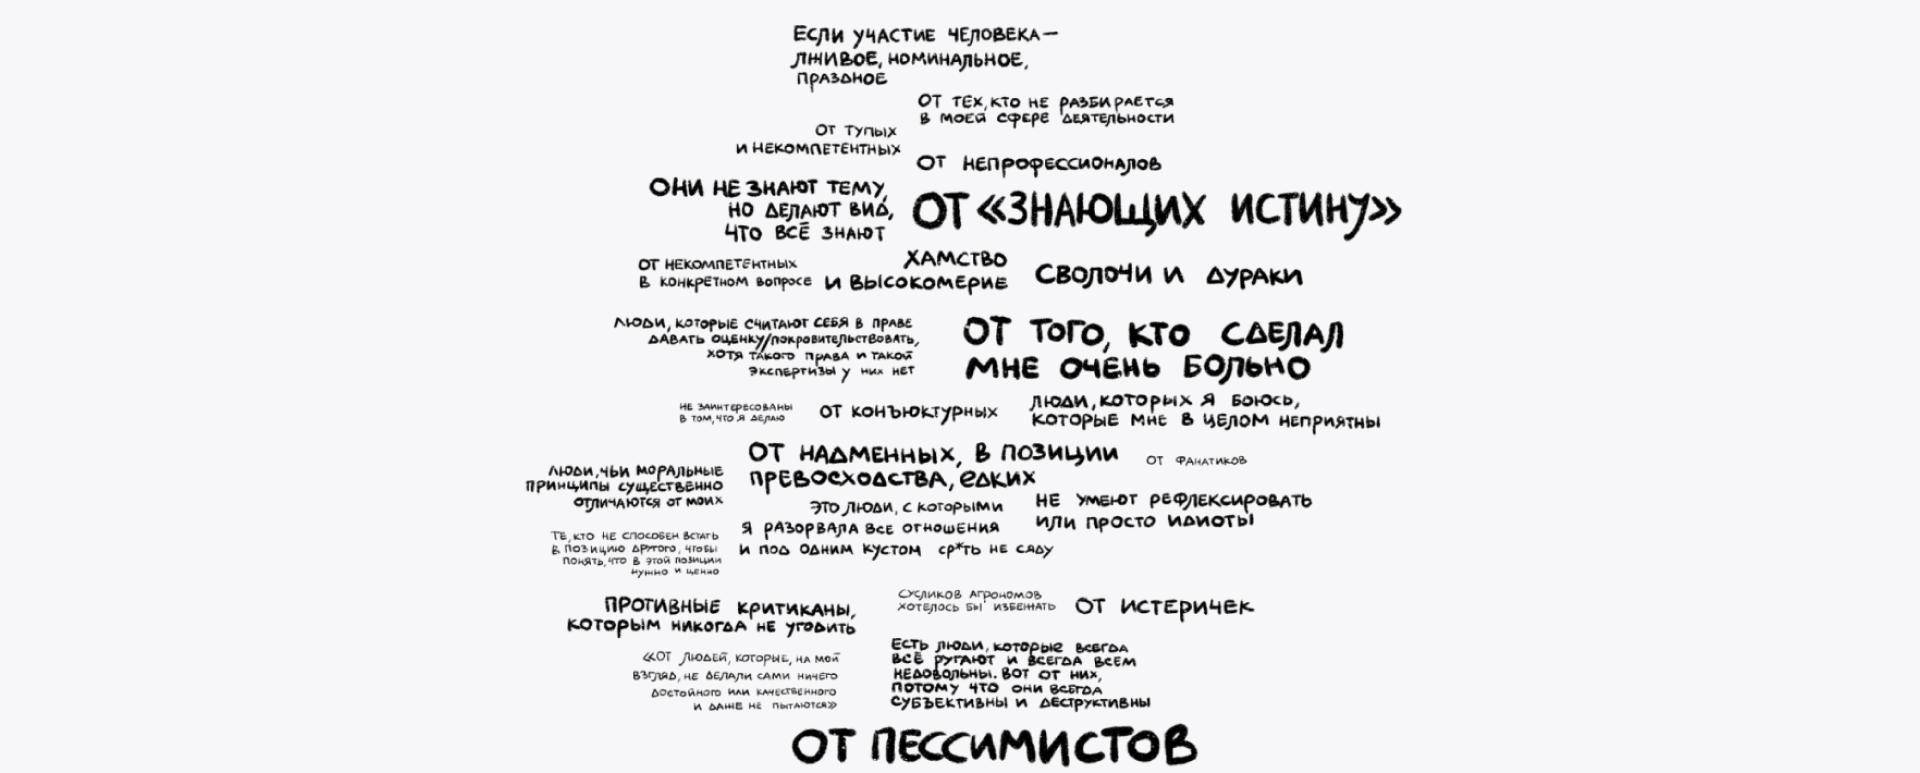 ЕСЛИ УЧАСТИЕ ЧЕЛОВЕКА —
ЛЖИВОЕ, НОМИНАЛЬНОЕ,
ПРАЗДНОЕ
ОТ ТЕХ, КТО НЕ РАЗБИРАЕТСЯ
В МОЕЙ СФЕРЕ ДЕЯТЕЛЬНОСТИ
ОТ ТУПЫХ
И НЕКОМПЕТЕНТНЫХ
ОТ НЕПРОФЕССИОНАЛОВ
ОНИ НЕ ЗНАЮТ ТЕМУ,
НО ДЕЛАЮТ ВИД,
ЧТО ВСЁ ЗНАЮТ
ОТ «ЗНАЮЩИХ ИСТИНУ»
ОТ НЕКОМПЕТЕНТНЫХ
В КОНКРЕТНОМ ВОПРОСЕ
ХАМСТВО
И ВЫСОКОМЕРИЕ
СВОЛОЧИ И ДУРАКИ
ЛЮДИ, КОТОРЫЕ СЧИТАЮТ СЕБЯ В ПРАВЕ
ДАВАТЬ ОЦЕНКУ/ПОКРОВИТЕЛЬСТВОВАТЬ,
ХОТЯ ТАКОГО ПРАВА И ТАКОЙ
ЭКСПЕРТИЗЫ У НИХ НЕТ
ОТ ТОГО, КТО СДЕЛАЛ
МНЕ ОЧЕНЬ БОЛЬНО
НЕ ЗАИНТЕРЕСОВАНЫ
В ТОМ, ЧТО Я ДЕЛАЮ
ОТ КОНЪЮКТУРНЫХ
ЛЮДИ, КОТОРЫХ Я БОЮСЬ,
КОТОРЫЕ МНЕ В ЦЕЛОМ НЕПРИЯТНЫ
ОТ НАДМЕННЫХ, В ПОЗИЦИИ
ПРЕВОСХОДСТВА, ЕДКИХ
ОТ ФАНАТИКОВ
ЛЮДИ, ЧЬИ МОРАЛЬНЫЕ
ПРИНЦИПЫ СУЩЕСТВЕННО
ОТЛИЧАЮТСЯ ОТ МОИХ
ЭТО ЛЮДИ, С КОТОРЫМИ
Я РАЗОРВАЛА ВСЕ ОТНОШЕНИЯ
И ПОД ОДНИМ КУСТОМ СР*ТЬ НЕ СЯДУ
НЕ УМЕЮТ РЕФЛЕКСИРОВАТЬ
ИЛИ ПРОСТО ИДИОТЫ
ТЕ, КТО НЕ СПОСОБЕН ВСТАТЬ
В ПОЗИЦИЮ ДРУГОГО, ЧТОБЫ
ПОНЯТЬ, ЧТО В ЭТОЙ ПОЗИЦИИ
НУЖНО И ЦЕННО
ПРОТИВНЫЕ КРИТИКАНЫ,
КОТОРЫМ НИКОГДА НЕ УГОДИТЬ
СУСЛИКОВ АГРОНОМОВ
ХОТЕЛОСЬ БЫ ИЗБЕЖАТЬ
ОТ ИСТЕРИЧЕК
«ОТ ЛЮДЕЙ, КОТОРЫЕ, НА МОЙ
ВЗГЛЯД, НЕ ДЕЛАЛИ САМИ НИЧЕГО
ДОСТОЙНОГО ИЛИ КАЧЕСТВЕННОГО
И ДАЖЕ НЕ ПЫТАЮТСЯ»
ЕСТЬ ЛЮДИ, КОТОРЫЕ ВСЕГДА
ВСЁ РУГАЮТ И ВСЕГДА ВСЕМ
НЕДОВОЛЬНЫ. ВОТ ОТ НИХ,
ПОТОМУ ЧТО ОНИ ВСЕГДА
СУБЪЕКТИВНЫ И ДЕСТРУКТИВНЫ
ОТ ПЕССИМИСТОВ